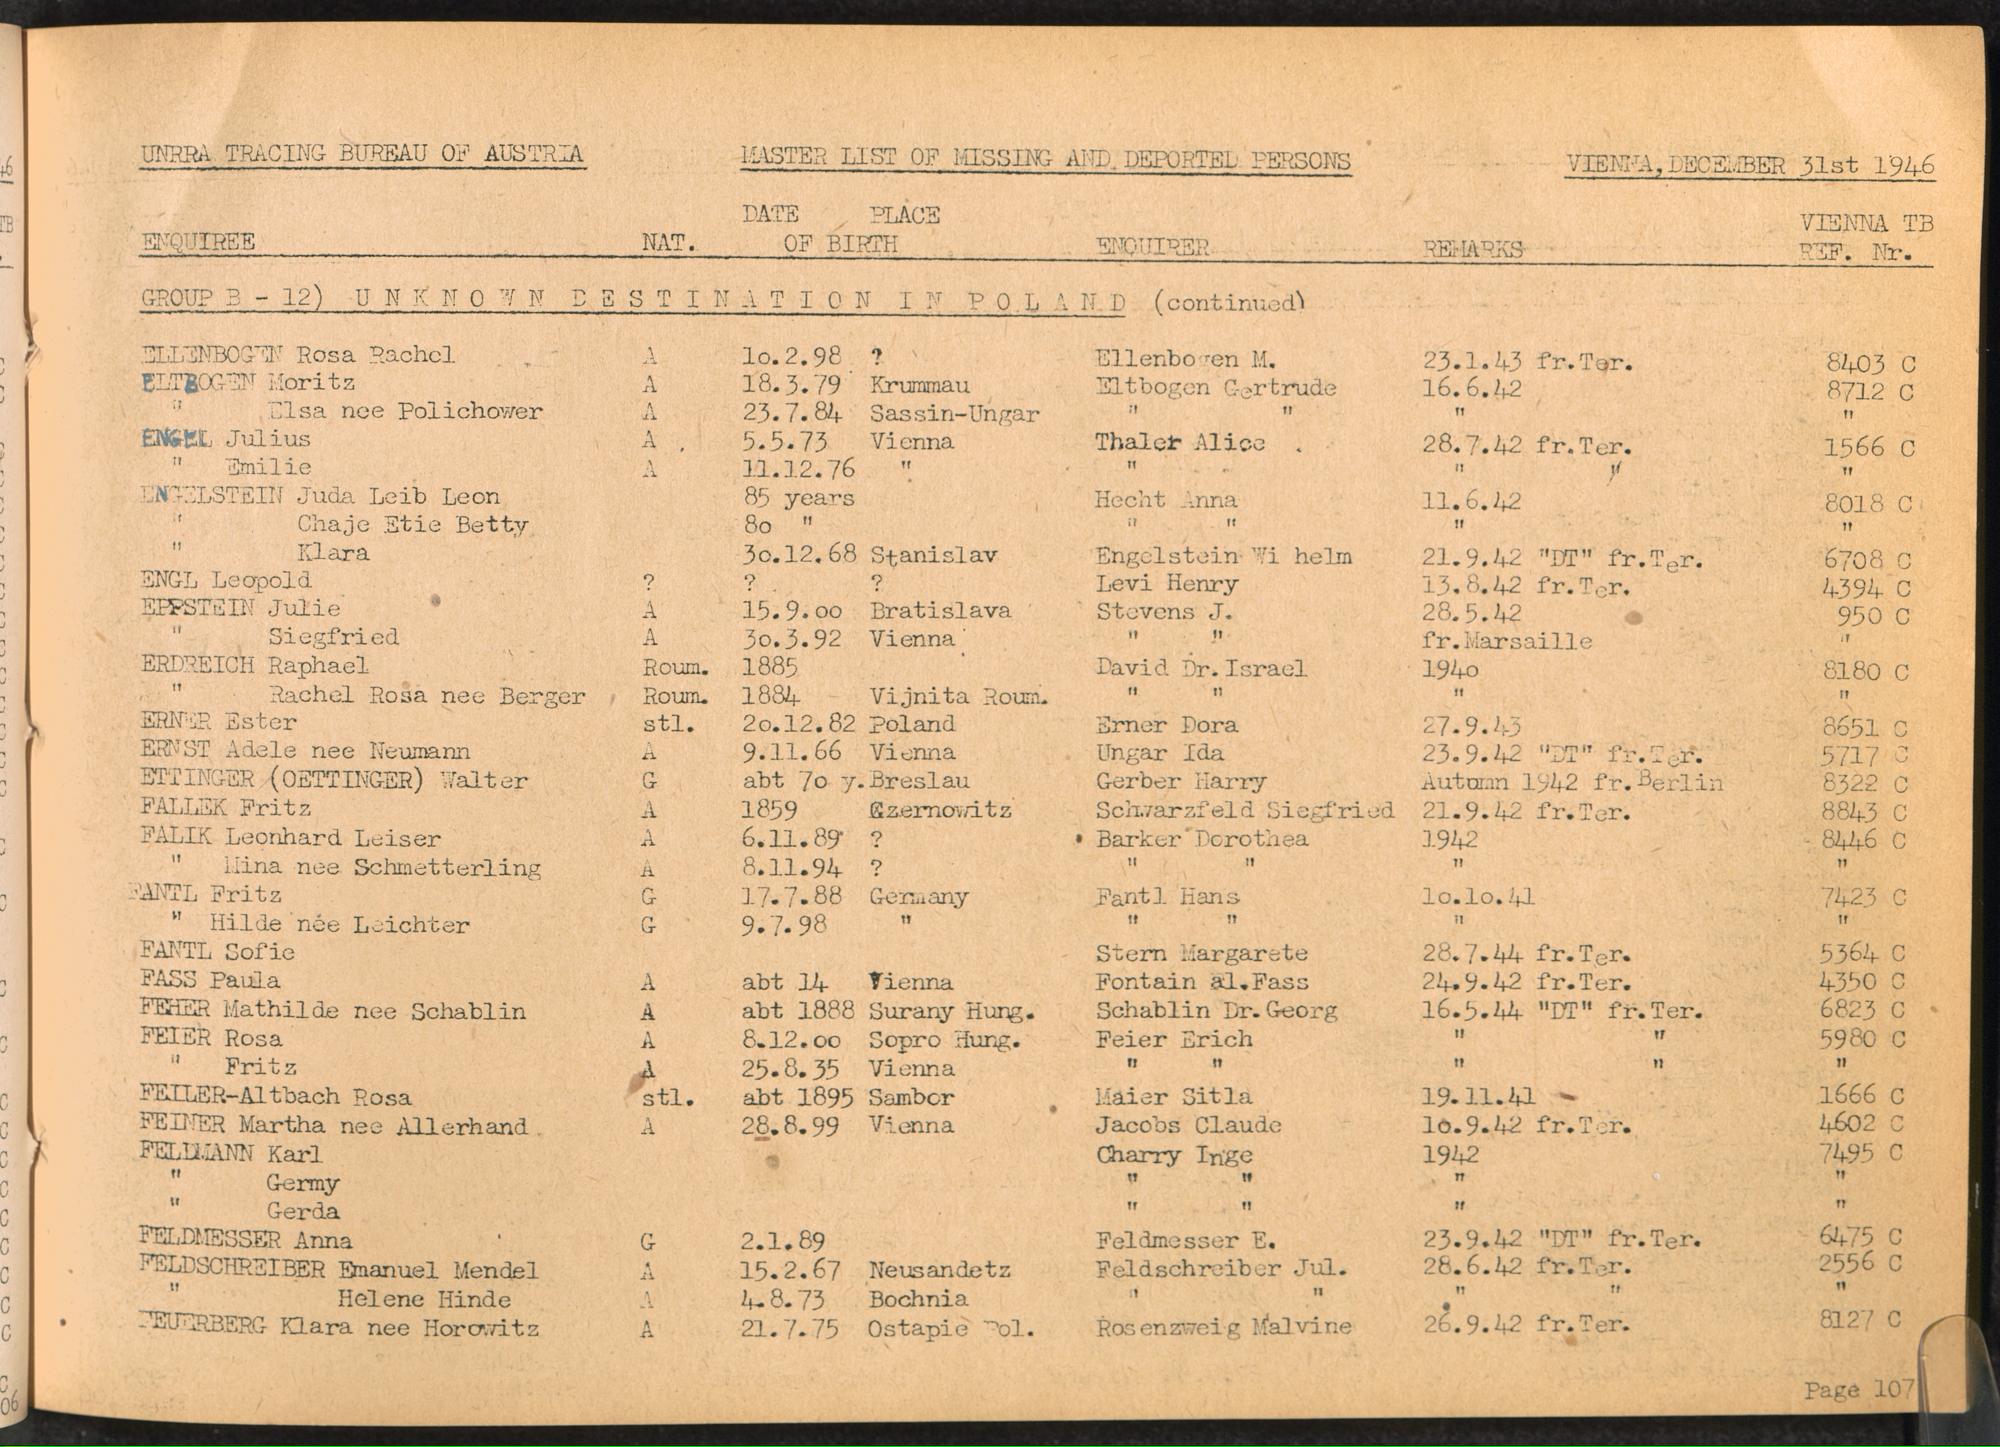 UNRRA TRACING BUREAU OF AUSTRIA MASTER LIST OF MISSING AND DEPORTED PERSONS VIENNA, DECEMBER 31st 1946
DATE PLACE VIENNA TB
ENQUIREE NAT. OF BIRTH ENQUIRER REMARKS REF. Nr.
GROUP B - 12) UNKNOWN DESTINATION IN POLAND (continued)
ELLENBOGEN Rosa Rachel A 1o.2.98 ? Ellenbogen M. 23.1.43 fr.Ter. 8403 C
ELTBOGEN Moritz A 18.3.79 Krummau Eltbogen Gertrude 16.6.42 8712 C
" Elsa nee Polichower A 23.7.84 Sassin-Ungar " " " "
ENGEL Julius A . 5.5.73 Vienna Thaler Alice . 28.7.42 fr.Ter. 1566 C
" Emilie A 11.12.76 " " " " "
ENGELSTEIN Juda Leib Leon 85 years Hecht Anna 11.6.42 8018 C
" Chaje Etie Betty 8o " " " " "
" Klara 3o.12.68 Stanislav Engelstein Wi helm 21.9.42 "DT" fr.Ter. 6708 C
ENGL Leopold ? ? ? Levi Henry 13.8.42 fr.Ter. 4394 C
EPPSTEIN Julie A 15.9.oo Bratislava Stevens J. 28.5.42 950 C
" Siegfried A 3o.3.92 Vienna " " fr.Marsaille "
ERDREICH Raphael Roum. 1885 David Dr.Israel 194o 8180 C
" Rachel Rosa nee Berger Roum. 1884 Vijnita Roum. " " " "
ERNER Ester stl. 2o.12.82 Poland Erner Dora 27.9.43 8651 C
ERNST Adele nee Neumann A 9.11.66 Vienna Ungar Ida 23.9.42 "DT" fr.Ter. 5717 C
ETTINGER (OETTINGER) Walter G abt 7o y.Breslau Gerber Harry Autumn 1942 fr.Berlin 8322 C
FALLEK Fritz A 1859 Czernowitz Schwarzfeld Siegfried 21.9.42 fr.Ter. 8843 C
FALIK Leonhard Leiser A 6.11.89 ? Barker Dorothea 1942 8446 C
" Mina nee Schmetterling A 8.11.94 ? " " " "
FANTL Fritz G 17.7.88 Germany Fantl Hans 1o.1o.41 7423 C
" Hilde née Leichter G 9.7.98 " " " " "
FANTL Sofie Stern Margarete 28.7.44 fr.Ter. 5364 C
FASS Paula A abt 14 Vienna Fontain al.Fass 24.9.42 fr.Ter. 4350 C
FEHER Mathilde nee Schablin A abt 1888 Surany Hung. Schablin Dr.Georg 16.5.44 "DT" fr.Ter. 6823 C
FEIER Rosa A 8.12.oo Sopro Hung. Feier Erich " " 5980 C
" Fritz A 25.8.35 Vienna " " " " "
FEILER-Altbach Rosa stl. abt 1895 Sambor Maier Sitla 19.11.41 1666 C
FEINER Martha nee Allerhand A 28.8.99 Vienna Jacobs Claude 1o.9.42 fr.Ter. 4602 C
FELDMANN Karl Charry Inge 1942 7495 C
" Germy " " " "
" Gerda " " " "
FELDMESSER Anna G 2.1.89 Feldmesser E. 23.9.42 "DT" fr.Ter. 6475 C
FELDSCHREIBER Emanuel Mendel A 15.2.67 Neusandetz Feldschreiber Jul. 28.6.42 fr.Ter. 2556 C
" Helene Hinde A 4.8.73 Bochnia " " " " "
FEUERBERG Klara nee Horowitz A 21.7.75 Ostapie Pol. Rosenzweig Malvine 26.9.42 fr.Ter. 8127 C
Page 107